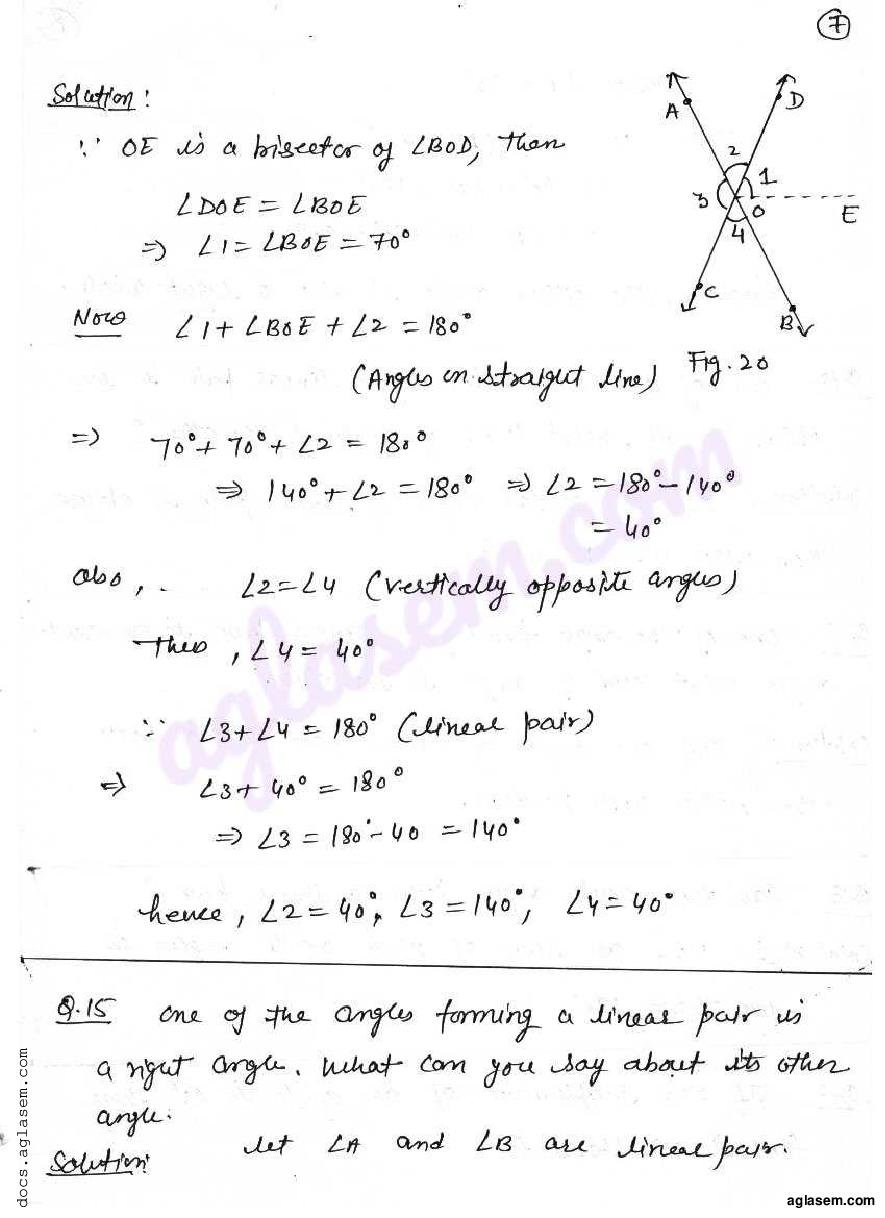 7
Solution :
∵ OE is a bisector of ∠BOD, then
∠DOE = ∠BOE
⇒ ∠1 = ∠BOE = 70°
Now ∠1 + ∠BOE + ∠2 = 180°
(Angles on straight line)
⇒ 70° + 70° + ∠2 = 180°
⇒ 140° + ∠2 = 180° ⇒ ∠2 = 180° - 140°
= 40°
also, ∠2 = ∠4 (vertically opposite angles)
Then, ∠4 = 40°
∵ ∠3 + ∠4 = 180° (lineal pair)
⇒ ∠3 + 40° = 180°
⇒ ∠3 = 180° - 40 = 140°
hence, ∠2 = 40°, ∠3 = 140°, ∠4 = 40°
A
D
2
1
3
O
E
4
C
B
Fig. 20
Q.15 One of the angles forming a linear pair is
a right angle. What can you say about its other
angle.
Solution: Let ∠A and ∠B are lineal pair.
aglasem.com
docs.aglasem.com
aglasem.com